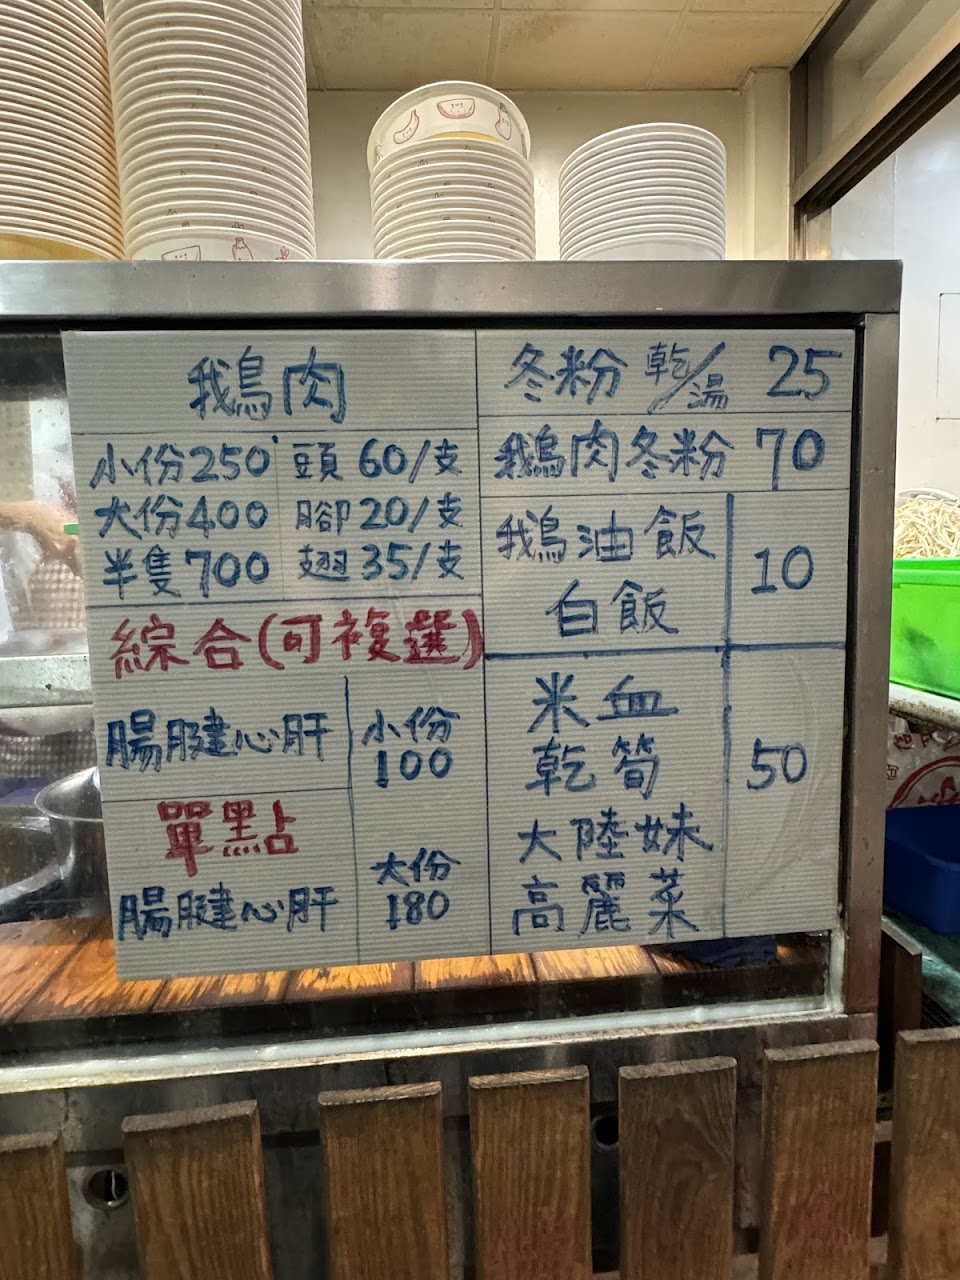 鵝肉
小份250 頭 60/支
大份400 腳 20/支
半隻700 翅 35/支
綜合(可複選)
腸腱心肝
小份
100
單點
腸腱心肝
大份
180
冬粉 乾/湯 25
鵝肉冬粉 70
鵝油飯
白飯
10
米血
乾筍
大陸妹
高麗菜
50